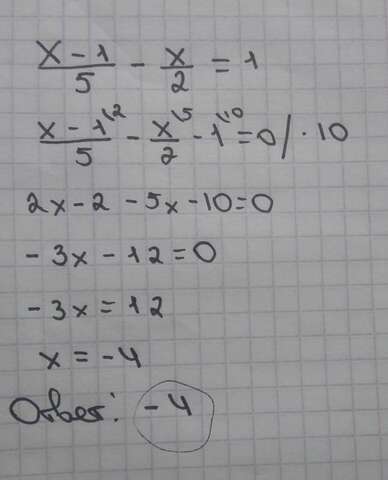 (x - 1)/5 - x/2 = 1
(x - 1^{\2})/5 - x^{\5}/2 - 1^{\10} = 0 / · 10
2x - 2 - 5x - 10 = 0
- 3x - 12 = 0
- 3x = 12
x = - 4
Ответ: - 4